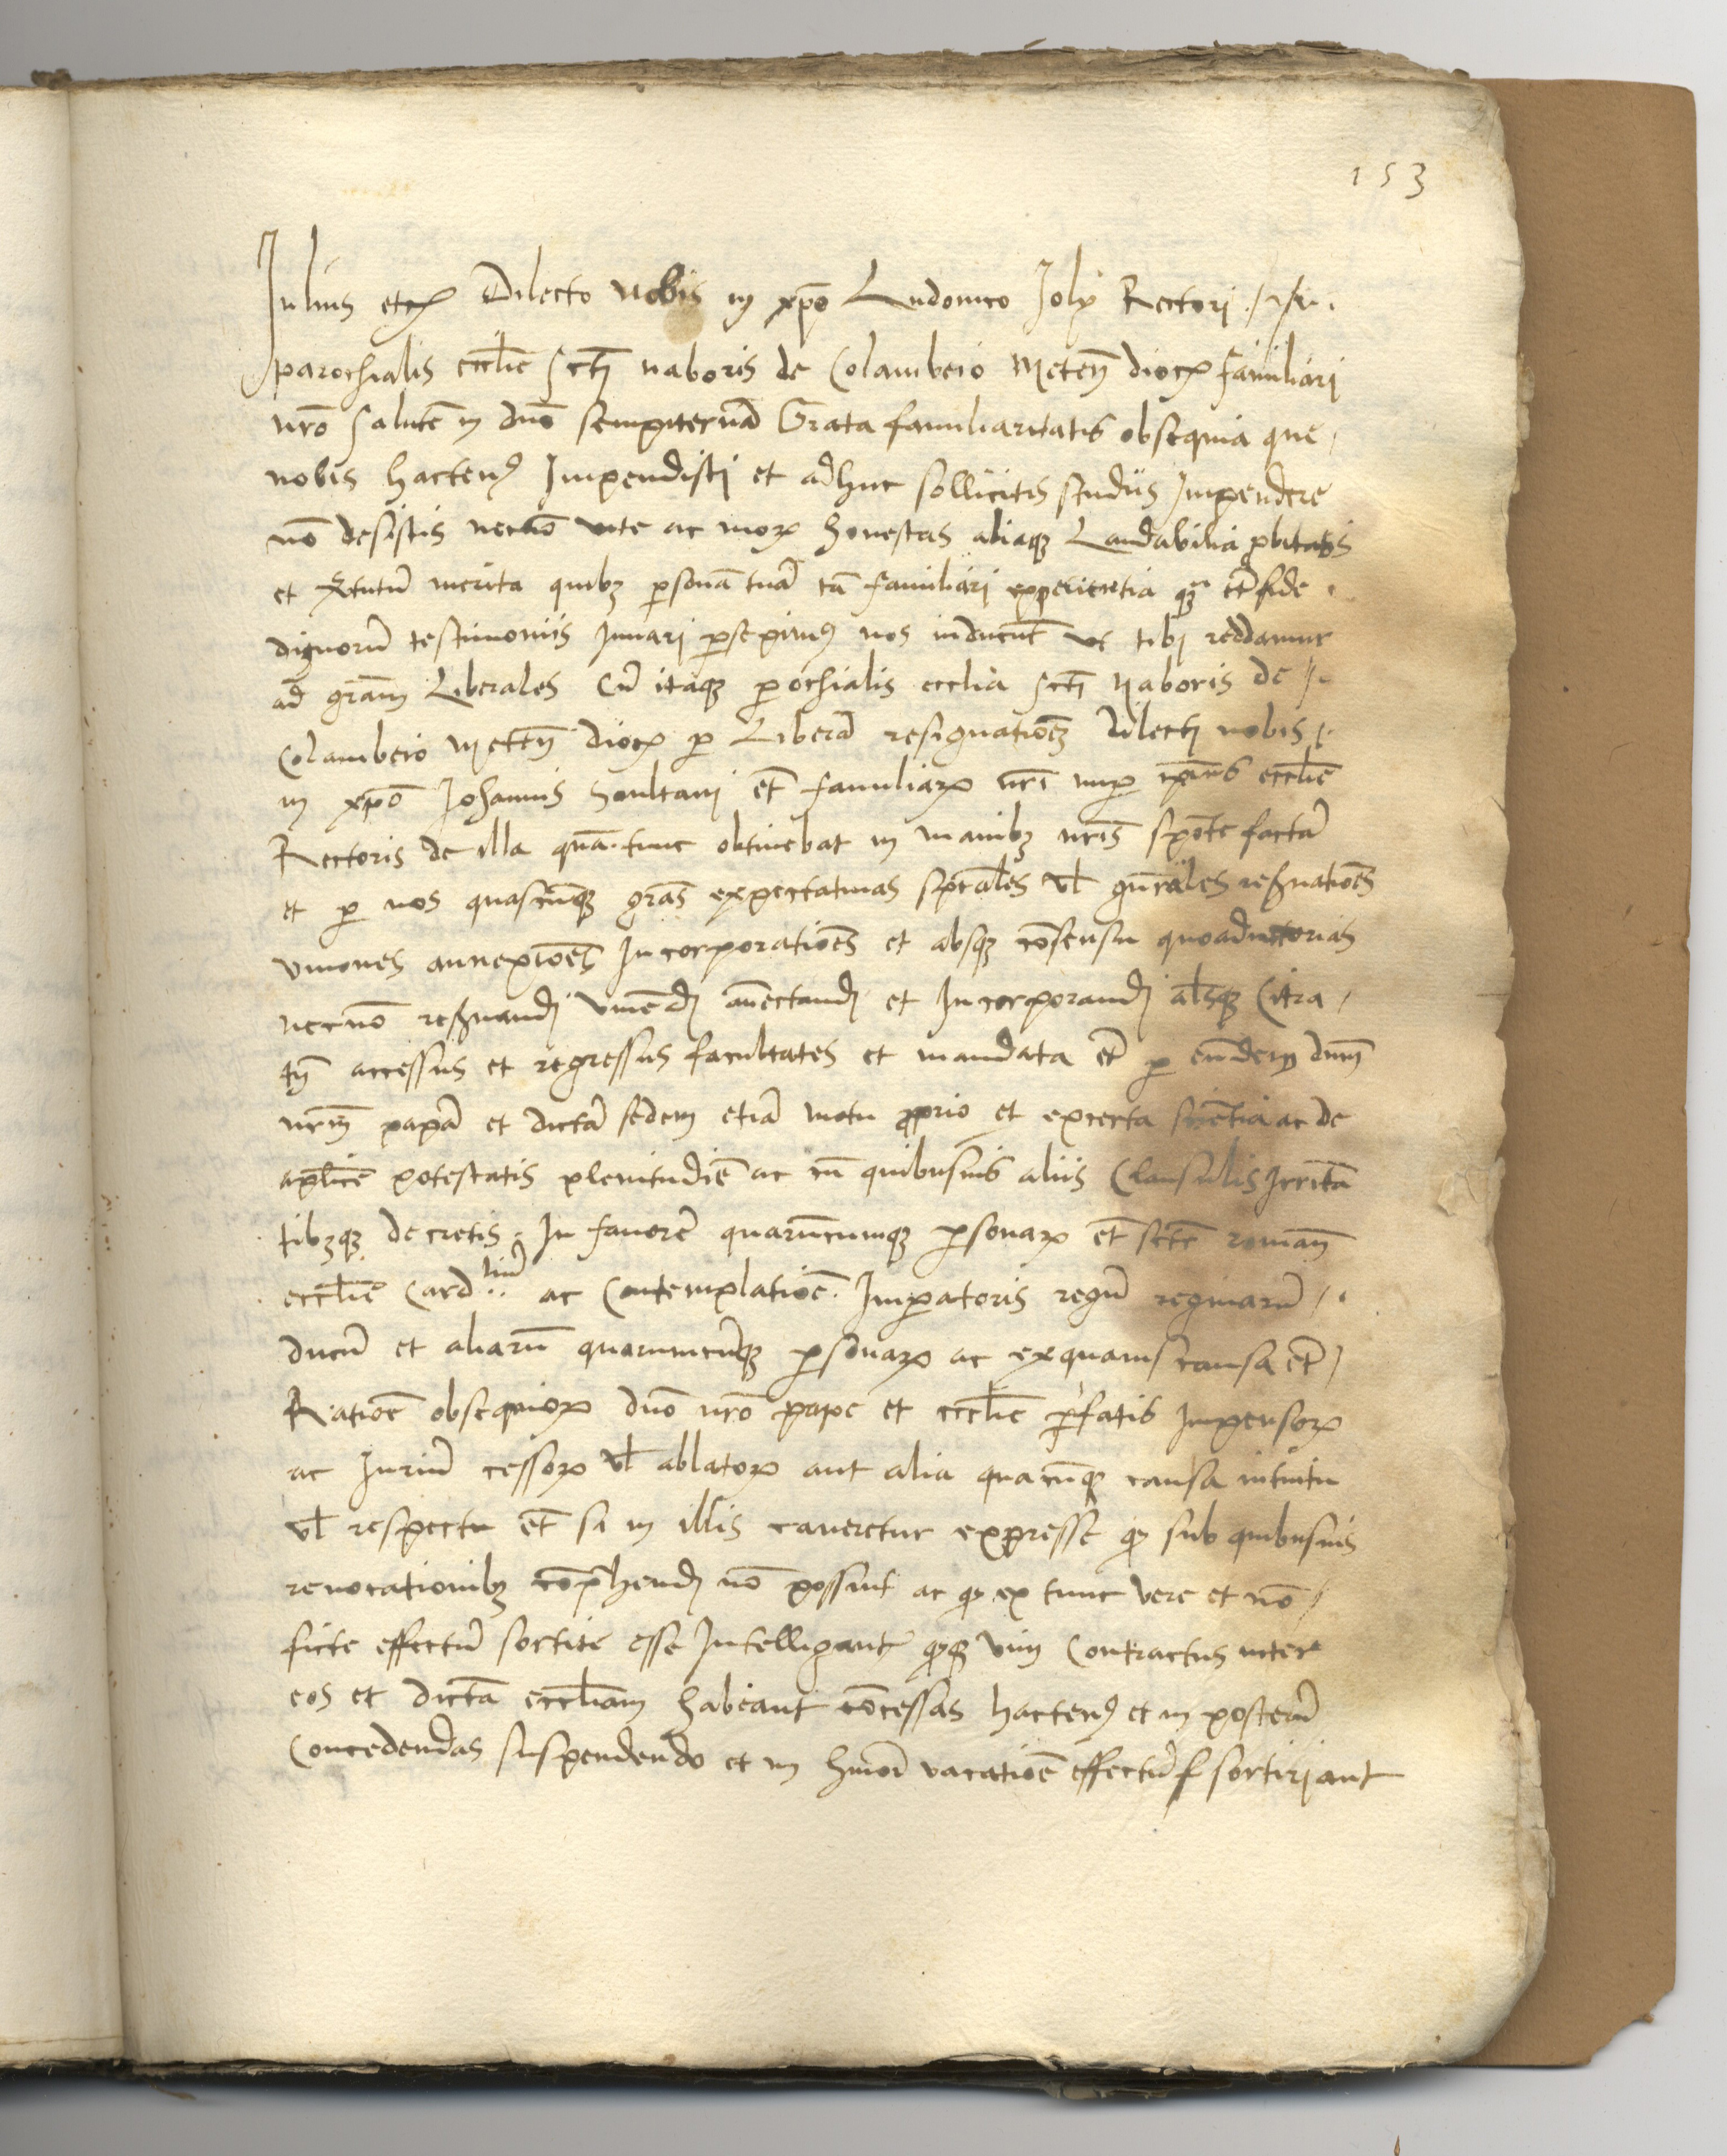 153
Julius etc Dilecto nobis in xpo Ludouico Joly Rectori
parochialis ecclie scti naboris de Colambeio Meten dioc familiari
nro salute in dno sempiterna Grata familiaritatis obsequia que
nobis hacten9 Impendisti et adhuc sollicitis studiis Impendere
no desistis necno uite ac mor honestas aliaq Laudabilia pbitatis
et Virtutu merita quib3 psona tua ta familiari experientia q et fide
dignoru testimoniis Juuari psepim9 nos inducut ut tibi reddamur
ad gram Liberales Cu itaq parochialis ecclia scti Naboris de
Colambeio Meten dioc p Libera resignatione dilecti nobis
in xpo Johannis Soultani et familiar nri nup ecclie
Rectoris de illa qua tunc obtinebat in manib3 nris sponte facta
et p nos quascuq gras expectatiuas spales vl gnrales resuationes
vniones annexioes Incorporationes et absq consensu quoadiutorias
necno resuandi vniedi anectandi et Incorporandi alsq Citra
tn accessus et regressus facultates et mandata et p eudem dnm
nrm papa et dicta sedem etia motu pprio et excerta scientia ac de
aplice potestatis plenitudie ac cu quibusuis aliis Clausulis Irrita
tib3q decretis In fauore quarucumq psonar et scte roman
ecclie Card liu ac Contemplatioe Impatoris regu reginaru
ducu et aliaru quarumcuq psonar ac exquauis causa et
Ratioe obsequior dno nro pape et ecclie pfatis Impensor
ac Juriu cessor vl ablator aut alia quacuq causa intuitu
vl respectu et si in illis caueretur expresse q sub quibusuis
reuocationib3 comphendi no possint ac q ex tunc vere et no
ficte effectu sortite esse Intelligant q vim Contractus inter
eos et dicta eccliam habeant concessas hacten9 et in posteru
Concedendas suspendendo et in hmoi vacatioe effectu sortiri aut